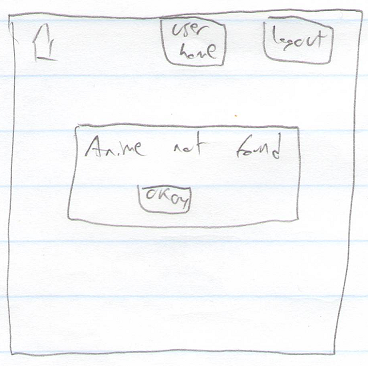 user
home
logout
Anime not found
okay